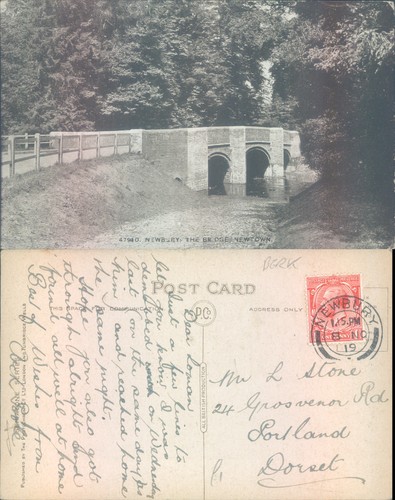 47940. NEWBURY. THE BRIDGE, NEWTOWN.
BERK
POST CARD
ADDRESS ONLY
NEWBURY
1.15 PM
8 NO
19
Mr L Stone
24 Grosvenor Rd
Portland
Dorset
Dear
Just a few lines to
let you know I was
on Wednesday
last on the same day as
him and reached home
the same night.
Hope you also got
through alright and
found all well at home
Best of Wishes from